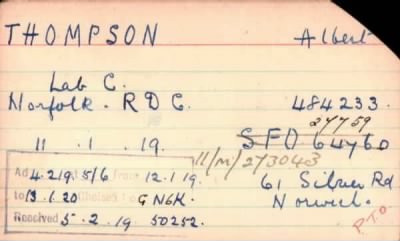 THOMPSON Albert
Lab C.
Norfolk. R D C. 484233.
27759
11 . 1 . 19. SFO 64760
11/M/273043
Ad 4.219.5/6 from 12.1.19. 61 Silver Rd
to 13.1.20 Chelsea GN6K. Norwich.
Received 5.2.19 50252. P.T.O